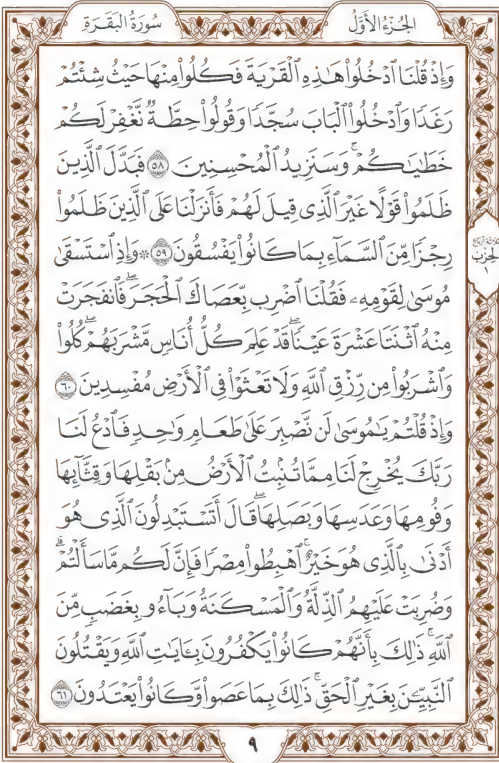 سُورَةُ البَقَرَةِ
الجُزْءُ الأَوَّلُ
وَإِذْ قُلْنَا ٱدْخُلُواْ هَٰذِهِ ٱلْقَرْيَةَ فَكُلُواْ مِنْهَا حَيْثُ شِئْتُمْ
رَغَدًا وَٱدْخُلُواْ ٱلْبَابَ سُجَّدًا وَقُولُواْ حِطَّةٌ نَّغْفِرْ لَكُمْ
خَطَٰيَٰكُمْ ۚ وَسَنَزِيدُ ٱلْمُحْسِنِينَ ٥٨ فَبَدَّلَ ٱلَّذِينَ
ظَلَمُواْ قَوْلًا غَيْرَ ٱلَّذِى قِيلَ لَهُمْ فَأَنزَلْنَا عَلَى ٱلَّذِينَ ظَلَمُواْ
رِجْزًا مِّنَ ٱلسَّمَآءِ بِمَا كَانُواْ يَفْسُقُونَ ٥٩ ۞ وَإِذِ ٱسْتَسْقَىٰ
مُوسَىٰ لِقَوْمِهِۦ فَقُلْنَا ٱضْرِب بِّعَصَاكَ ٱلْحَجَرَ ۖ فَٱنفَجَرَتْ
مِنْهُ ٱثْنَتَا عَشْرَةَ عَيْنًا ۖ قَدْ عَلِمَ كُلُّ أُنَاسٍ مَّشْرَبَهُمْ ۖ كُلُواْ
وَٱشْرَبُواْ مِن رِّزْقِ ٱللَّهِ وَلَا تَعْثَوْاْ فِى ٱلْأَرْضِ مُفْسِدِينَ ٦٠
وَإِذْ قُلْتُمْ يَٰمُوسَىٰ لَن نَّصْبِرَ عَلَىٰ طَعَامٍ وَٰحِدٍ فَٱدْعُ لَنَا
رَبَّكَ يُخْرِجْ لَنَا مِمَّا تُنۢبِتُ ٱلْأَرْضُ مِنۢ بَقْلِهَا وَقِثَّآئِهَا
وَفُومِهَا وَعَدَسِهَا وَبَصَلِهَا ۖ قَالَ أَتَسْتَبْدِلُونَ ٱلَّذِى هُوَ
أَدْنَىٰ بِٱلَّذِى هُوَ خَيْرٌ ۚ ٱهْبِطُواْ مِصْرًا فَإِنَّ لَكُم مَّا سَأَلْتُمْ ۗ
وَضُرِبَتْ عَلَيْهِمُ ٱلذِّلَّةُ وَٱلْمَسْكَنَةُ وَبَآءُو بِغَضَبٍ مِّنَ
ٱللَّهِ ۗ ذَٰلِكَ بِأَنَّهُمْ كَانُواْ يَكْفُرُونَ بِـَٔايَٰتِ ٱللَّهِ وَيَقْتُلُونَ
ٱلنَّبِيِّـۧنَ بِغَيْرِ ٱلْحَقِّ ۗ ذَٰلِكَ بِمَا عَصَواْ وَّكَانُواْ يَعْتَدُونَ ٦١
الحِزْبِ
١
٩